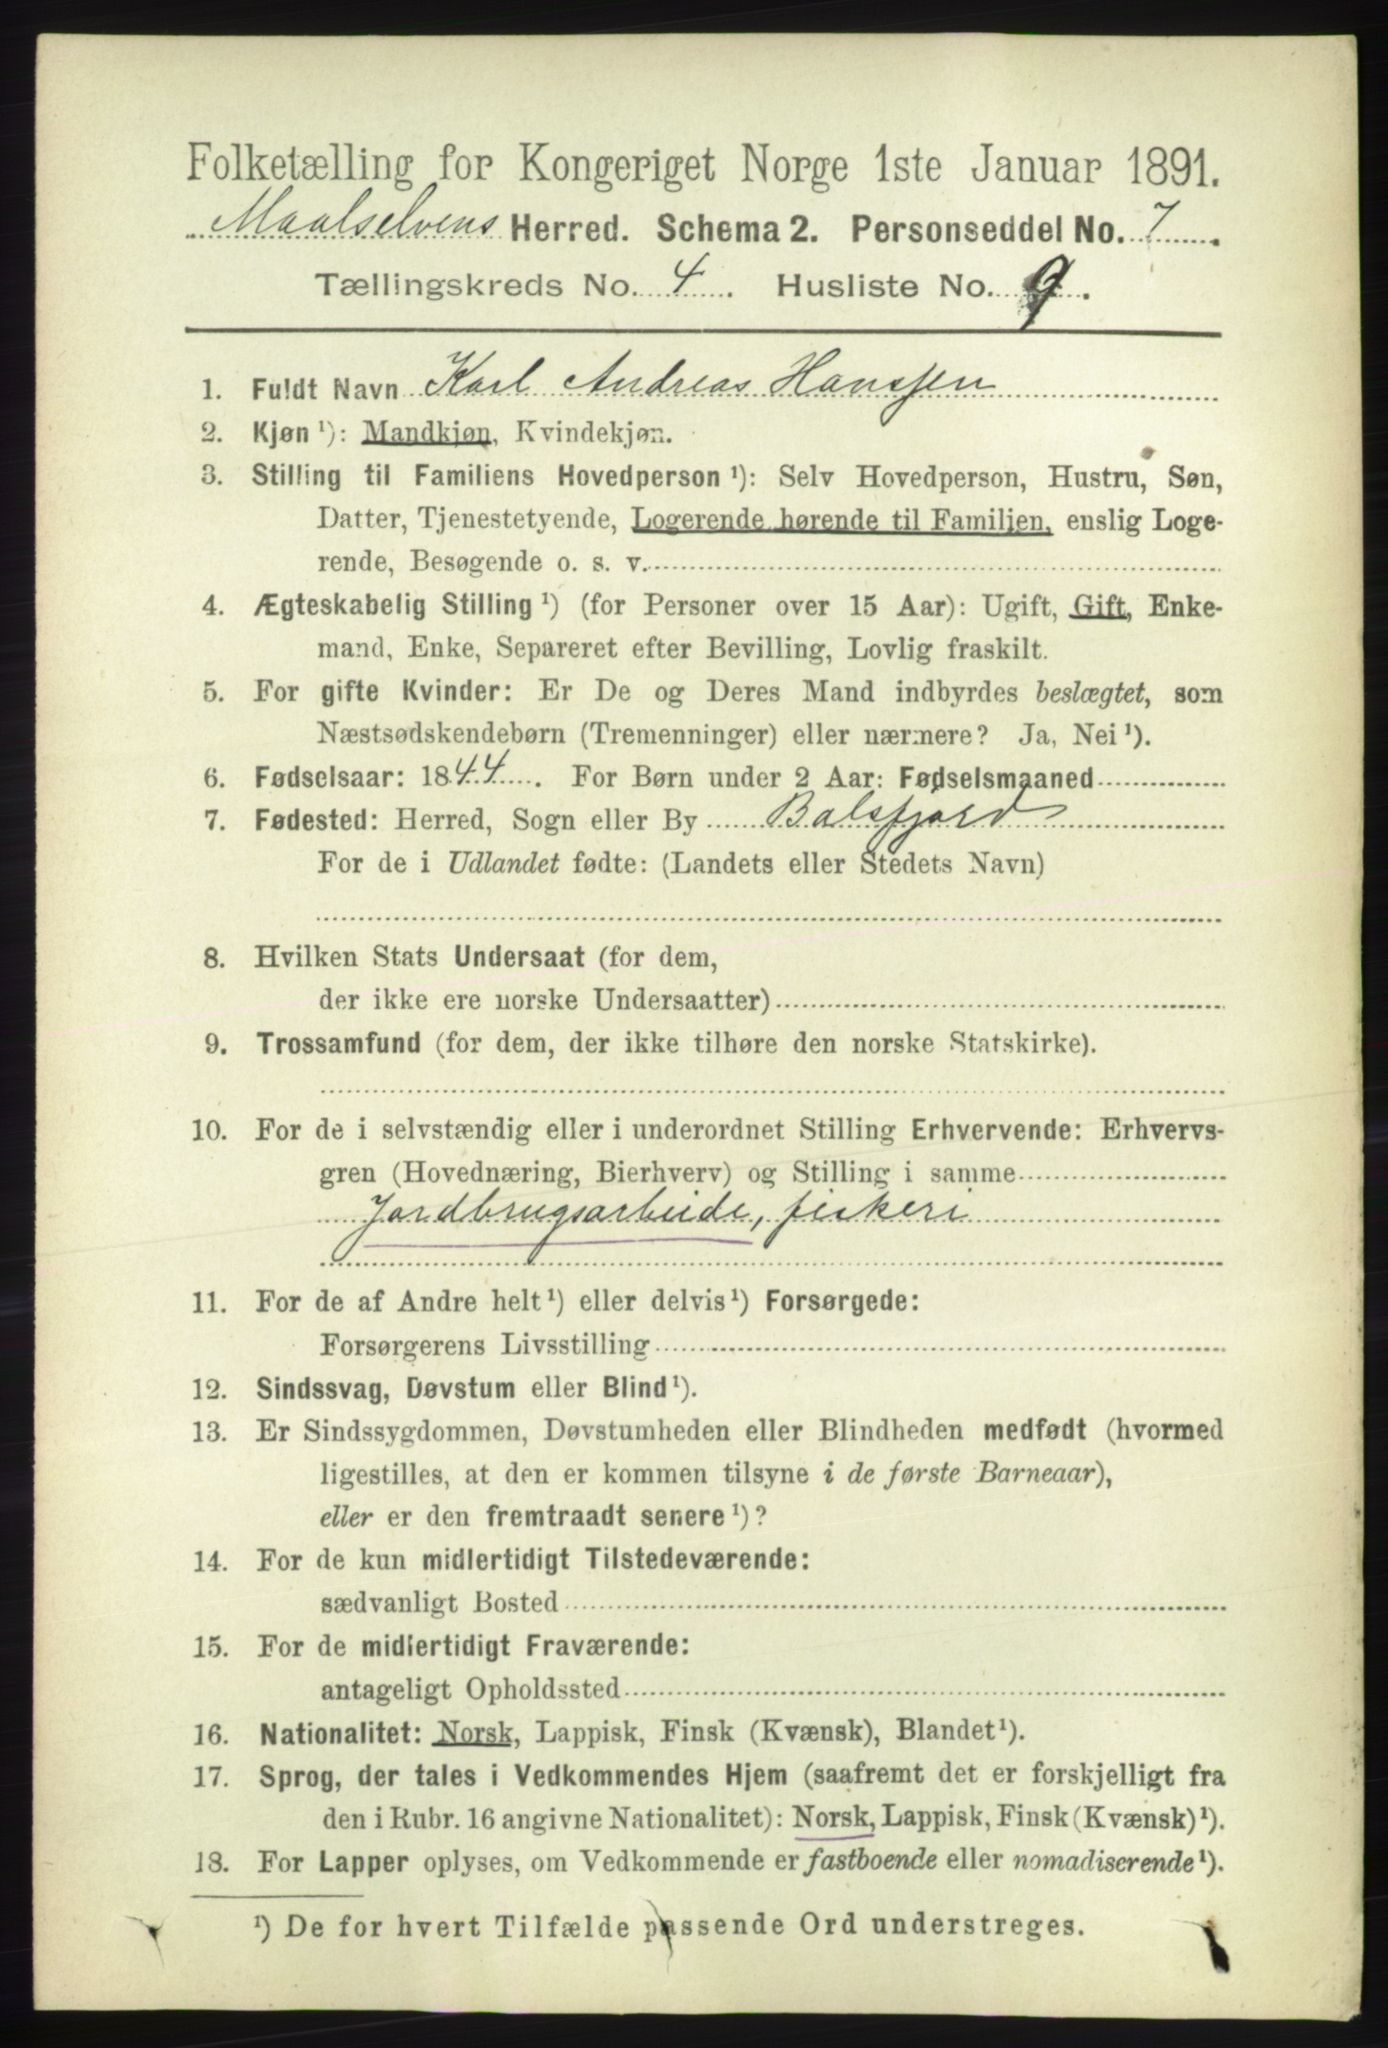 Folketælling for Kongeriget Norge 1ste Januar 1891.
Maalselvens Herred. Schema 2. Personseddel No. 7.
Tællingskreds No. 4. Husliste No. 9.
1. Fuldt Navn Karl Andreas Hanssen
2. Kjøn ¹): Mandkjøn, Kvindekjøn.
3. Stilling til Familiens Hovedperson ¹): Selv Hovedperson, Hustru, Søn,
Datter, Tjenestetyende, Logerende hørende til Familien, enslig Loge-
rende, Besøgende o. s. v.
4. Ægteskabelig Stilling ¹) (for Personer over 15 Aar): Ugift, Gift, Enke-
mand, Enke, Separeret efter Bevilling, Lovlig fraskilt.
5. For gifte Kvinder: Er De og Deres Mand indbyrdes beslægtet, som
Næstsødskendebørn (Tremenninger) eller nærmere? Ja, Nei ¹).
6. Fødselsaar: 1844. For Børn under 2 Aar: Fødselsmaaned
7. Fødested: Herred, Sogn eller By Balsfjord
For de i Udlandet fødte: (Landets eller Stedets Navn)
8. Hvilken Stats Undersaat (for dem,
der ikke ere norske Undersaatter)
9. Trossamfund (for dem, der ikke tilhøre den norske Statskirke).
10. For de i selvstændig eller i underordnet Stilling Erhvervende: Erhvervs-
gren (Hovednæring, Bierhverv) og Stilling i samme
Jordbrugsarbeide, fiskeri
11. For de af Andre helt ¹) eller delvis ¹) Forsørgede:
Forsørgerens Livsstilling
12. Sindssvag, Døvstum eller Blind ¹).
13. Er Sindssygdommen, Døvstumheden eller Blindheden medfødt (hvormed
ligestilles, at den er kommen tilsyne i de første Barneaar),
eller er den fremtraadt senere ¹)?
14. For de kun midlertidigt Tilstedeværende:
sædvanligt Bosted
15. For de midlertidigt Fraværende:
antageligt Opholdssted
16. Nationalitet: Norsk, Lappisk, Finsk (Kvænsk), Blandet ¹).
17. Sprog, der tales i Vedkommendes Hjem (saafremt det er forskjelligt fra
den i Rubr. 16 angivne Nationalitet): Norsk, Lappisk, Finsk (Kvænsk) ¹).
18. For Lapper oplyses, om Vedkommende er fastboende eller nomadiserende ¹).
¹) De for hvert Tilfælde passende Ord understreges.